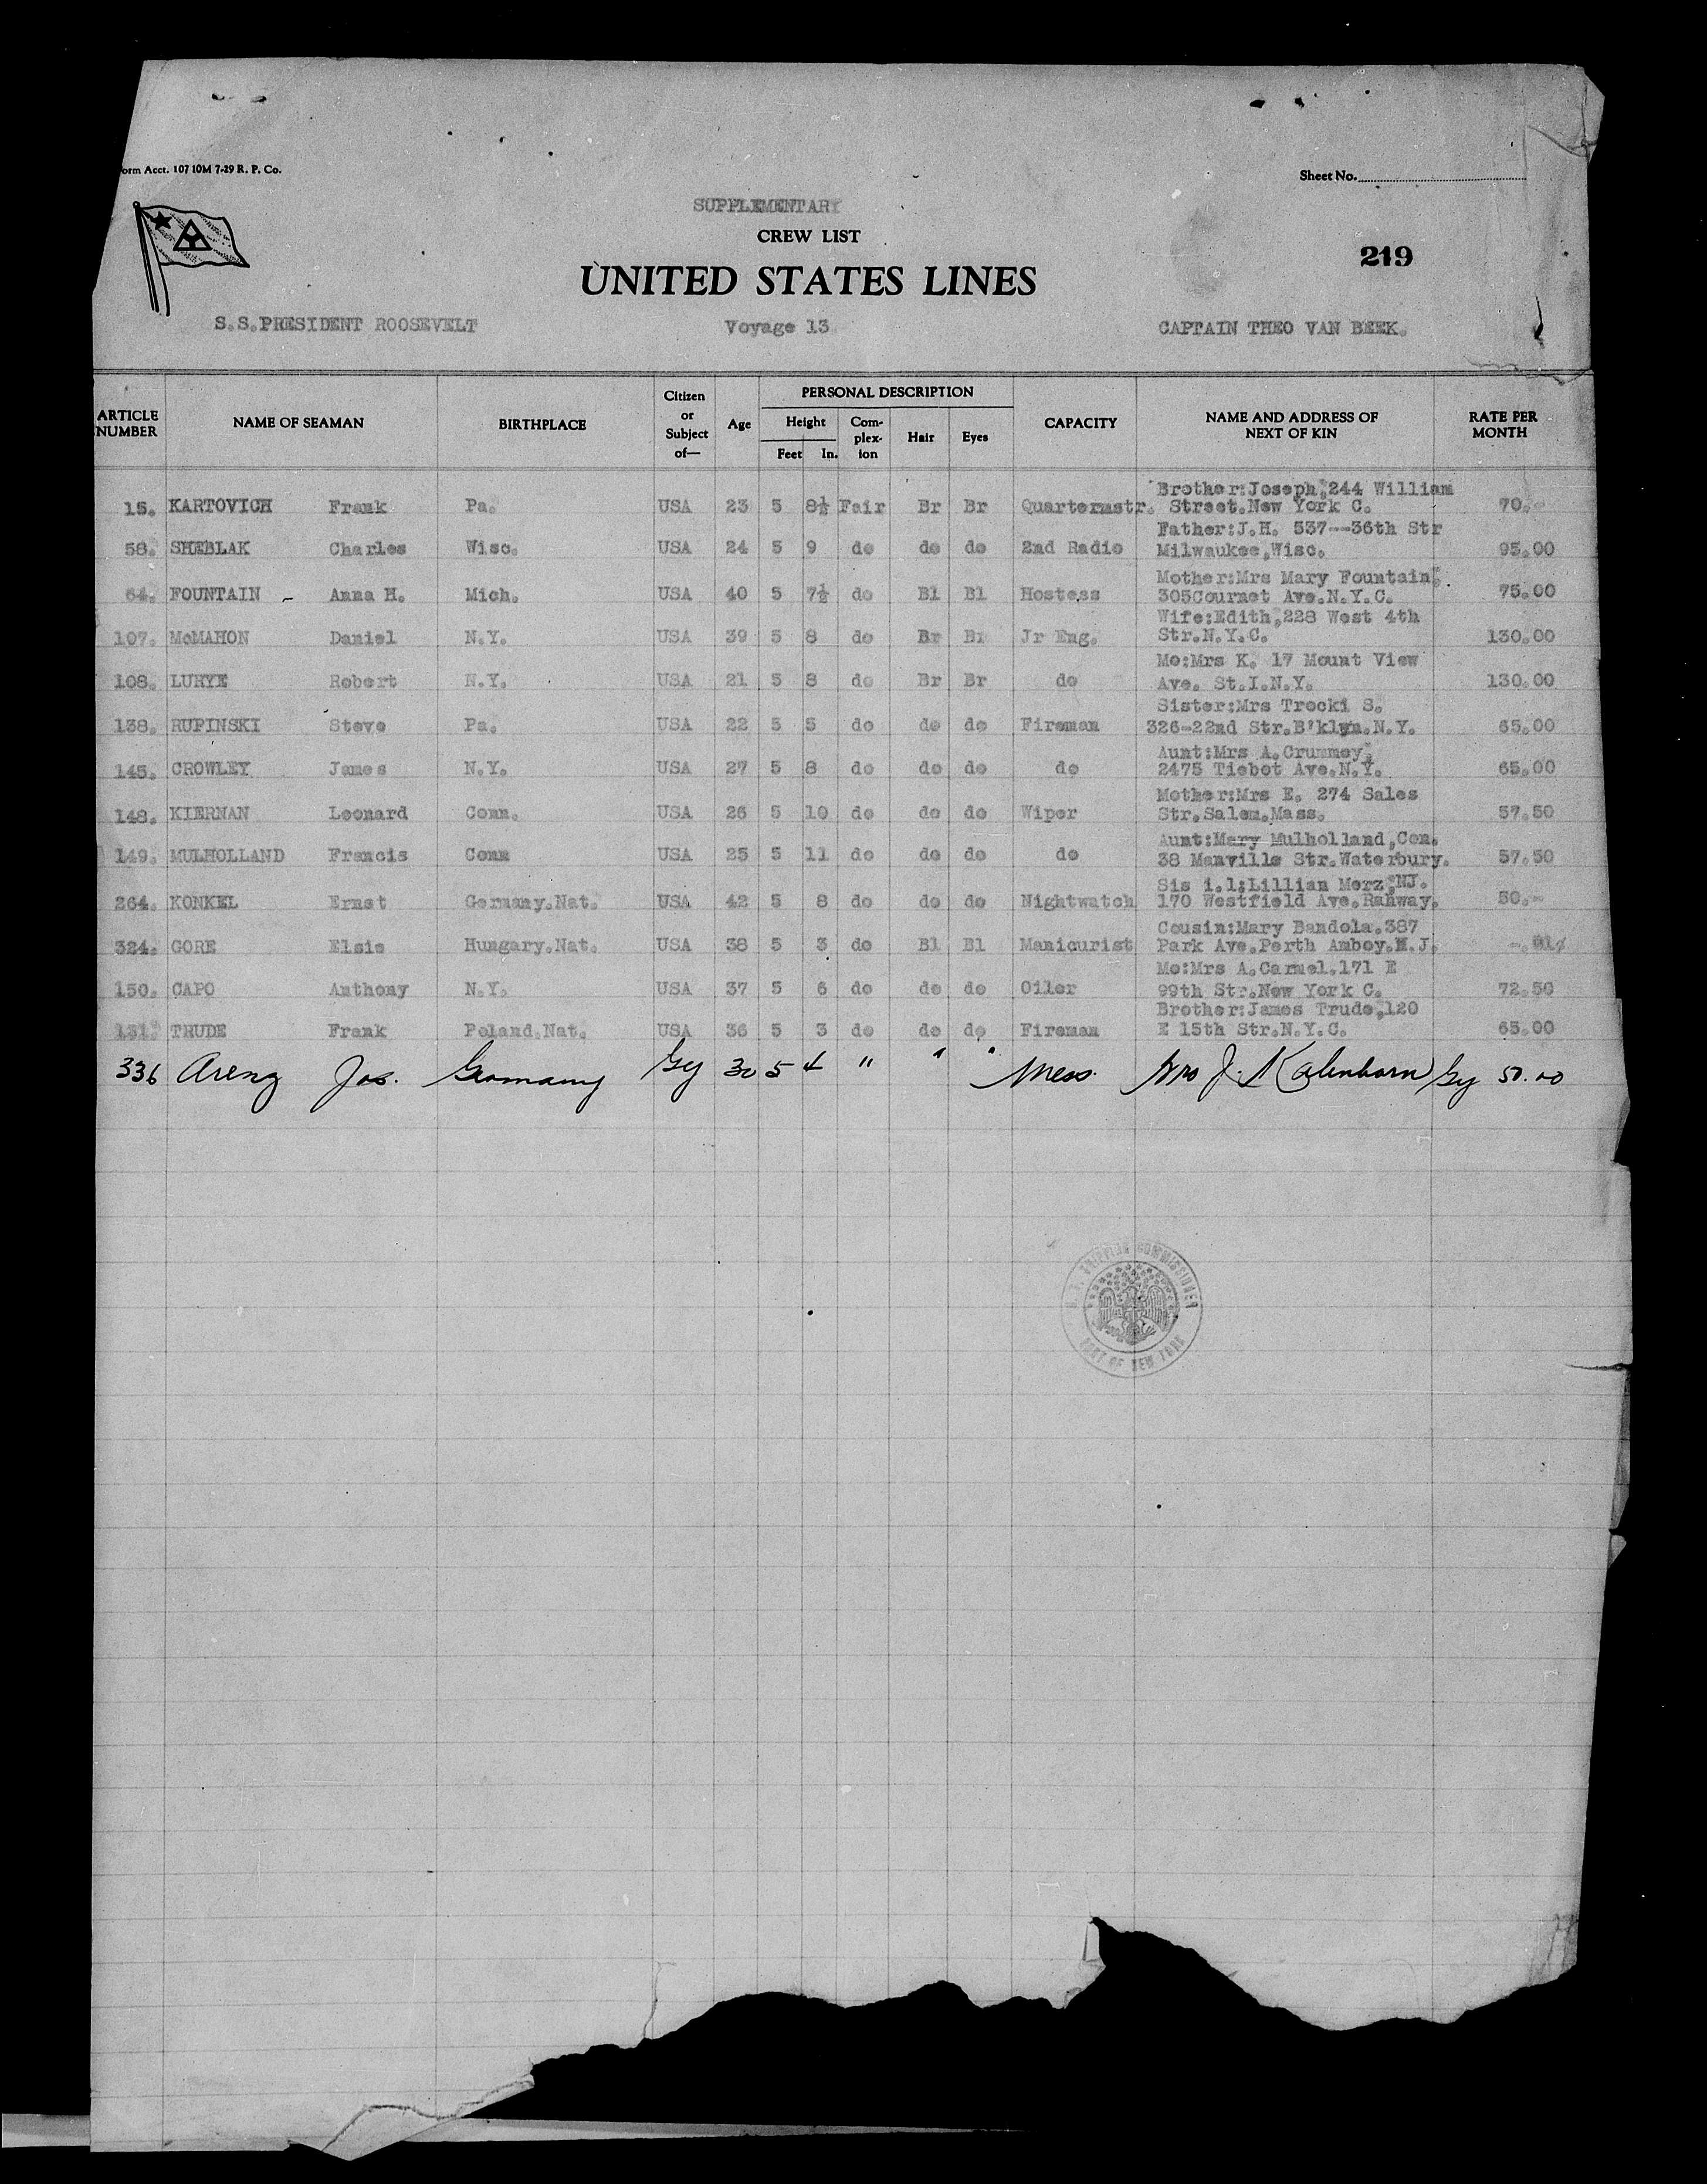 orm Acct. 107 10M 7-29 R. P. Co.
Sheet No.
SUPPLEMENTARY
CREW LIST
219
UNITED STATES LINES
S.S.PRESIDENT ROOSEVELT Voyage 13 CAPTAIN THEO VAN BEEK.
ARTICLE NUMBER NAME OF SEAMAN BIRTHPLACE Citizen or Subject of— Age PERSONAL DESCRIPTION Height Feet In. Com-plex-ion Hair Eyes CAPACITY NAME AND ADDRESS OF NEXT OF KIN RATE PER MONTH
Brother:Joseph,244 William
15. KARTOVICH Frank Pa. USA 23 5 8½ Fair Br Br Quartermstr. Street.New York C. 70.-
Father:J.H. 537--36th Str
58. SHEBLAK Charles Wisc. USA 24 5 9 do do do 2nd Radio Milwaukee,Wisc. 95.00
Mother:Mrs Mary Fountain,
64. FOUNTAIN - Anna H. Mich. USA 40 5 7½ do Bl Bl Hostess 305Gournet Ave.N.Y.C. 75.00
Wife:Edith,228 West 4th
107. McMAHON Daniel N.Y. USA 39 5 8 do Br Br Jr Eng. Str.N.Y.C. 130.00
Mo:Mrs K. 17 Mount View
108. LURYE Robert N.Y. USA 21 5 8 do Br Br do Ave. St.I.N.Y. 130.00
Sister:Mrs Trocki S.
138. RUPINSKI Steve Pa. USA 22 5 5 do do do Fireman 326-22nd Str.B'klyn.N.Y. 65.00
Aunt:Mrs A.Crummey,
145. CROWLEY James N.Y. USA 27 5 8 do do do do 2475 Tiebot Ave.N.Y. 65.00
Mother:Mrs E. 274 Sales
148. KIERNAN Leonard Conn. USA 26 5 10 do do do Wiper Str.Salem.Mass. 57.50
Aunt:Mary Mulholland,Con.
149. MULHOLLAND Francis Conn USA 25 5 11 do do do do 38 Manville Str.Waterbury. 57.50
Sis i.l;Lillian Merz,NJ.
264. KONKEL Ernst Germany.Nat. USA 42 5 8 do do do Nightwatch 170 Westfield Ave.Rahway. 50.-
Cousin:Mary Bandola.387
324. GORE Elsie Hungary.Nat. USA 38 5 3 do Bl Bl Manicurist Park Ave.Perth Amboy.N.J. -.01¢
Mo:Mrs A.Carmel.171 E
150. CAPO Anthony N.Y. USA 37 5 6 do do do Oiler 99th Str.New York C. 72.50
Brother:James Trude,120
131. TRUDE Frank Poland.Nat. USA 36 5 3 do do do Fireman E 15th Str.N.Y.C. 65.00
336 Arenz Jos. Germany Gy 30 5 4 " " " Mess. Mrs J. Kalenborn Gy 50.00
U.S. SHIPPING COMMISSIONER
PORT OF NEW YORK